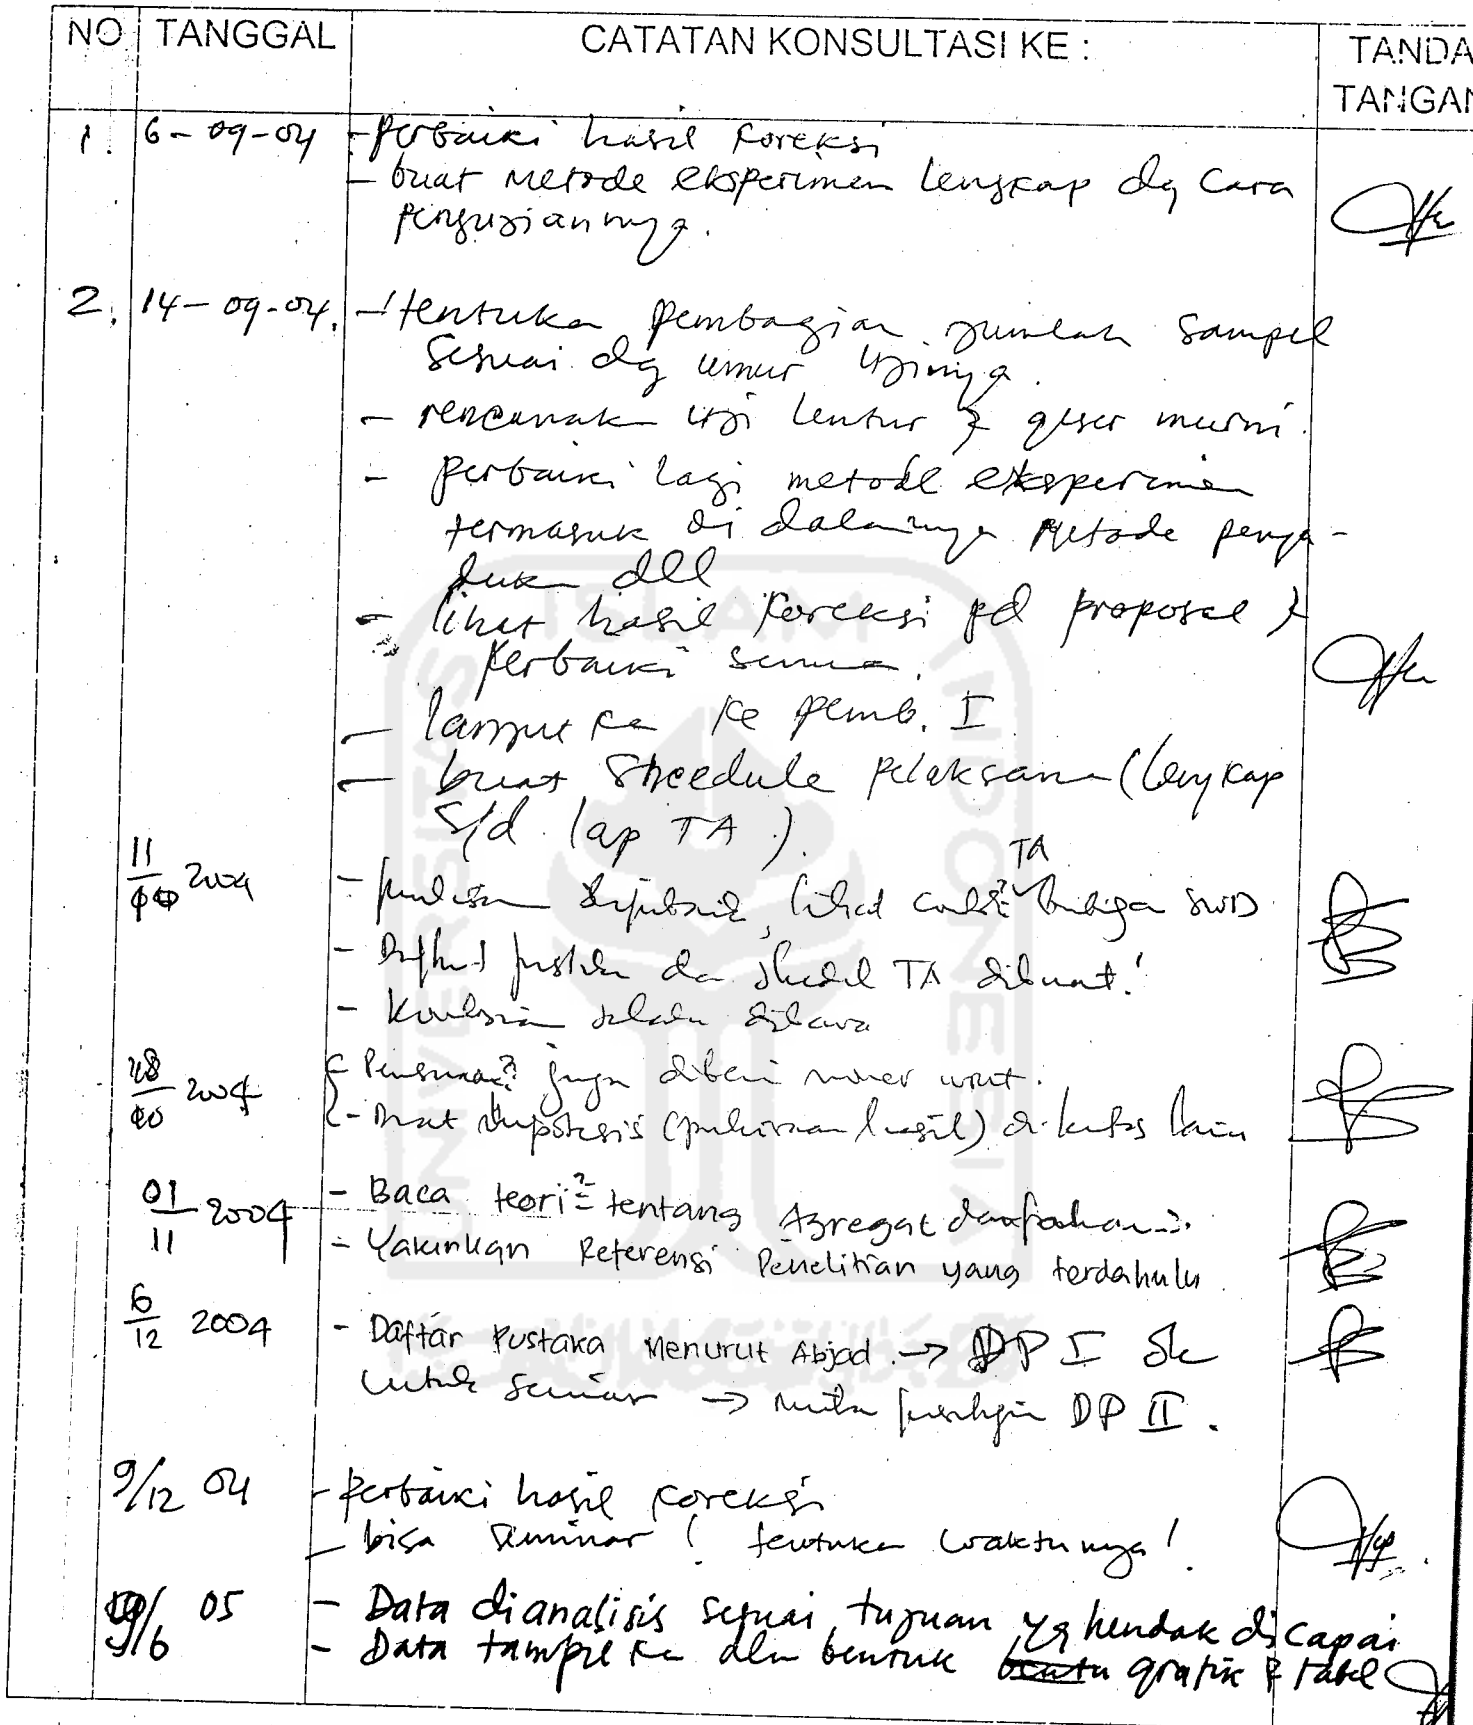 NO TANGGAL CATATAN KONSULTASI KE : TANDA
TANGAN
1. 6-09-04 - Perbaiki hasil koreksi
- buat metode eksperimen lengkap dg cara
pengujiannya.
2. 14-09-04. - tentukan pembagian jumlah sampel
sesuai dg umur ujinya.
- rencanakan uji lentur & geser murni.
- perbaiki lagi metode eksperimen
termasuk di dalamnya metode penga-
dukan dll
- lihat hasil koreksi pd proposal &
perbaiki semua.
- lanjutkan ke pemb. I
- buat Scheedule pelaksanaan (lengkap
s/d lap TA).
11 2004 - TA
- Daftar pustaka dan TA dibuat!
- selalu dibawa
28 2004 - juga diberi nomer urut.
- Buat hipotesis (perkiraan hasil) di kertas lain
01/11 2004 - Baca teori² tentang Agregat
- Yakinkan Referensi Penelitian yang terdahulu
6/12 2004 - Daftar Pustaka Menurut Abjad. → DP I Ok
untuk seminar → DP II.
9/12 04 - perbaiki hasil koreksi
- bisa seminar ! tentukan waktunya !
/6 05 - Data dianalisis sesuai tujuan yg hendak dicapai
- Data tampilkan dlm bentuk grafik & tabel
UNIVERSITAS ISLAM INDONESIA